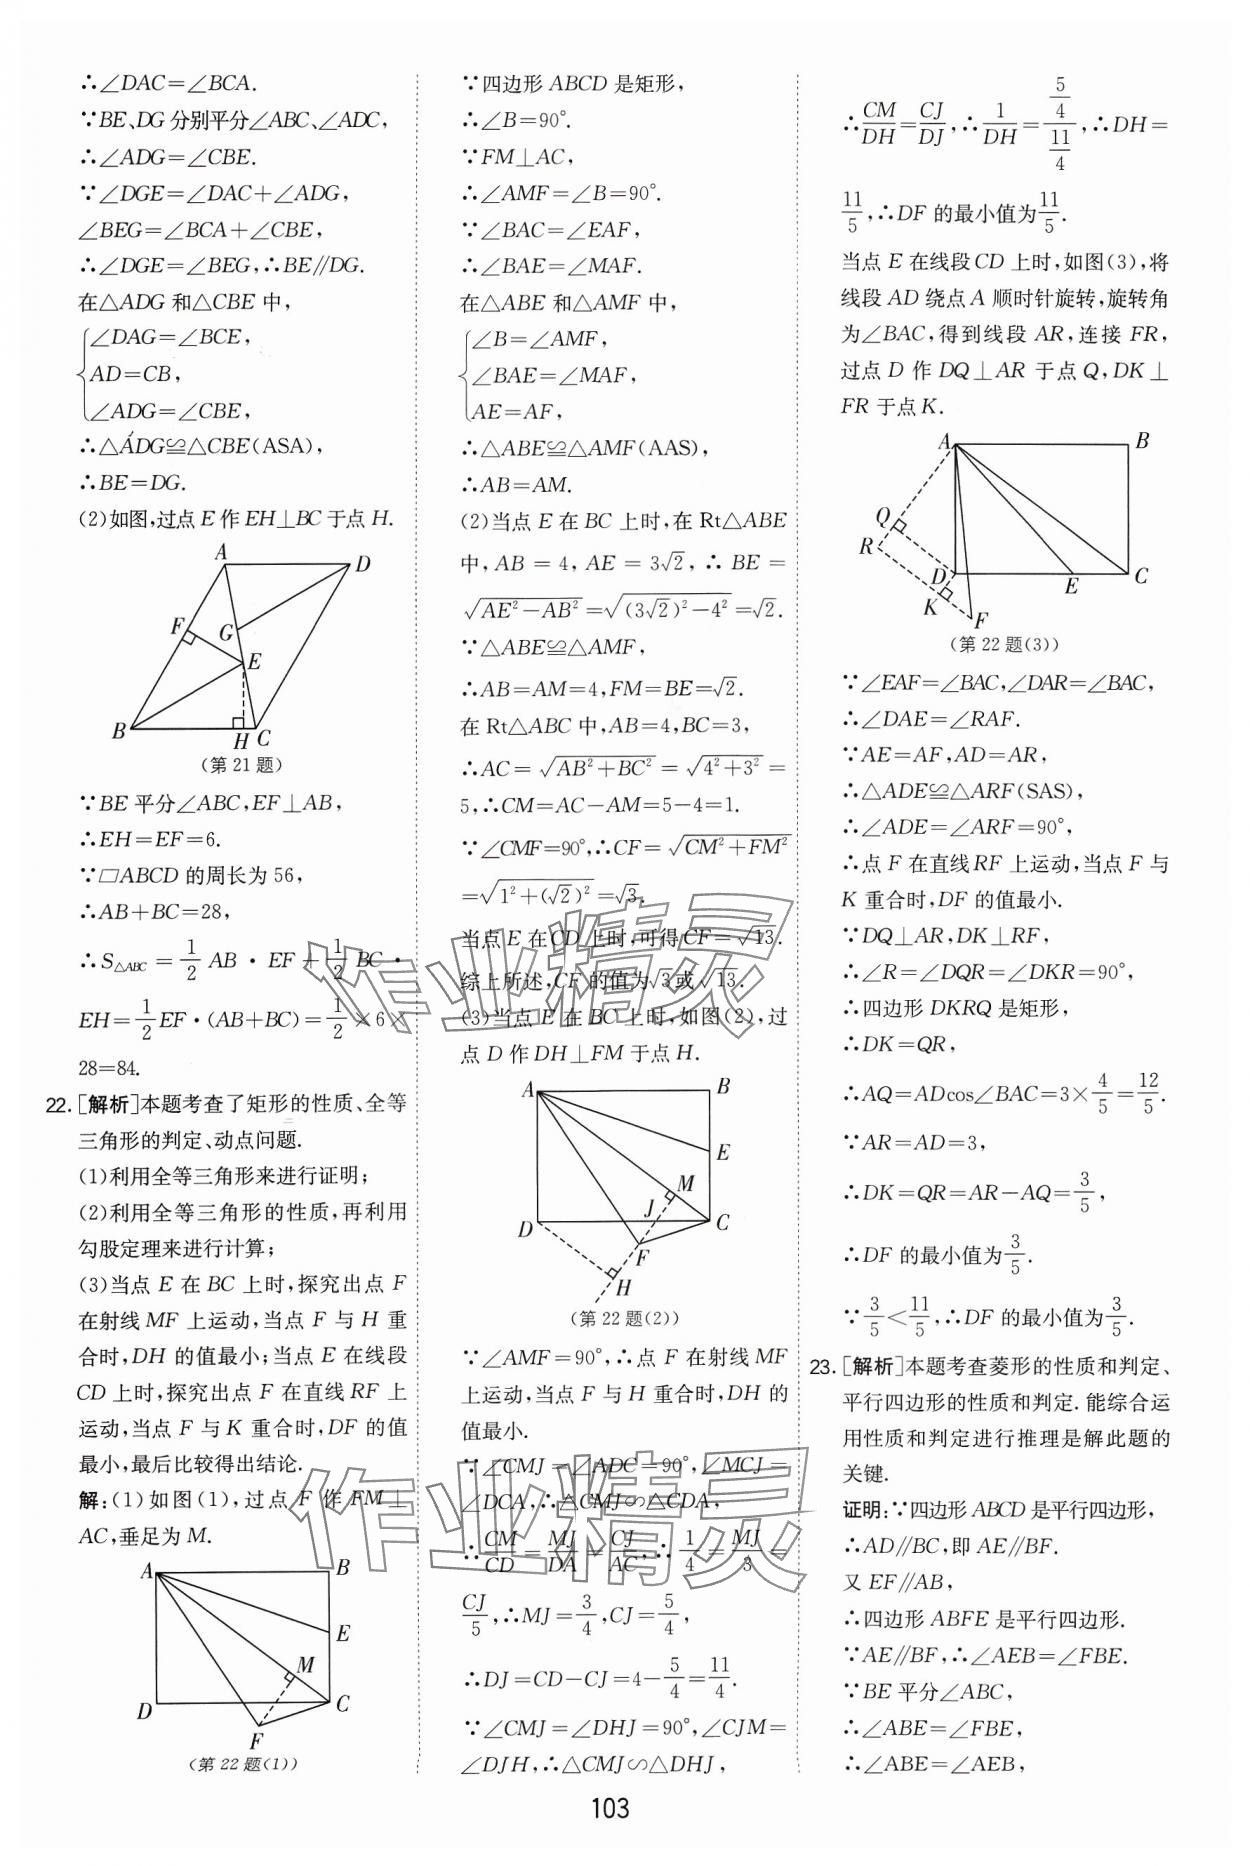 ∴∠DAC=∠BCA.
∵BE、DG 分别平分∠ABC、∠ADC，
∴∠ADG=∠CBE.
∵∠DGE=∠DAC+∠ADG，
∠BEG=∠BCA+∠CBE，
∴∠DGE=∠BEG，∴BE∥DG.
在△ADG 和△CBE 中，
∠DAG=∠BCE，
AD=CB，
∠ADG=∠CBE，
∴△ADG≌△CBE(ASA)，
∴BE=DG.
(2)如图，过点 E 作 EH⊥BC 于点 H.
A
D
F
G
E
B
H
C
(第 21 题)
∵BE 平分∠ABC，EF⊥AB，
∴EH=EF=6.
∵▱ABCD 的周长为 56，
∴AB+BC=28，
∴S△ABC = 1/2 AB · EF + 1/2 BC ·
EH = 1/2 EF·(AB+BC) = 1/2 ×6×
28=84.
22. [解析]本题考查了矩形的性质、全等
三角形的判定、动点问题.
(1)利用全等三角形来进行证明；
(2)利用全等三角形的性质，再利用
勾股定理来进行计算；
(3)当点 E 在 BC 上时，探究出点 F
在射线 MF 上运动，当点 F 与 H 重
合时，DH 的值最小；当点 E 在线段
CD 上时，探究出点 F 在直线 RF 上
运动，当点 F 与 K 重合时，DF 的值
最小，最后比较得出结论.
解：(1)如图(1)，过点 F 作 FM⊥
AC，垂足为 M.
A
B
E
M
D
C
F
(第 22 题(1))
∵四边形 ABCD 是矩形，
∴∠B=90°.
∵FM⊥AC，
∴∠AMF=∠B=90°.
∵∠BAC=∠EAF，
∴∠BAE=∠MAF.
在△ABE 和△AMF 中，
∠B=∠AMF，
∠BAE=∠MAF，
AE=AF，
∴△ABE≌△AMF(AAS)，
∴AB=AM.
(2)当点 E 在 BC 上时，在 Rt△ABE
中，AB = 4，AE = 3√2，∴ BE =
√(AE²−AB²) = √((3√2)²−4²) = √2.
∵△ABE≌△AMF，
∴AB=AM=4，FM=BE=√2.
在 Rt△ABC 中，AB=4，BC=3，
∴AC = √(AB²+BC²) = √(4²+3²) =
5，∴CM=AC−AM=5−4=1.
∵∠CMF=90°，∴CF= √(CM²+FM²)
= √(1²+(√2)²) = √3.
当点 E 在 CD 上时，可得 CF= √13.
综上所述，CF 的值为√3或√13.
(3)当点 E 在 BC 上时，如图(2)，过
点 D 作 DH⊥FM 于点 H.
A
B
E
M
J
D
C
F
H
(第 22 题(2))
∵∠AMF=90°，∴点 F 在射线 MF
上运动，当点 F 与 H 重合时，DH 的
值最小.
∵∠CMJ=∠ADC=90°，∠MCJ=
∠DCA，∴△CMJ∽△CDA，
∴CM/CD = MJ/DA = CJ/AC，∴1/4 = MJ/3 =
CJ/5，∴MJ=3/4，CJ=5/4，
∴DJ=CD−CJ=4−5/4=11/4.
∵∠CMJ=∠DHJ=90°，∠CJM=
∠DJH，∴△CMJ∽△DHJ，
∴CM/DH = CJ/DJ，∴1/DH = (5/4)/(11/4)，∴DH=
11/5，∴DF 的最小值为11/5.
当点 E 在线段 CD 上时，如图(3)，将
线段 AD 绕点 A 顺时针旋转，旋转角
为∠BAC，得到线段 AR，连接 FR，
过点 D 作 DQ⊥AR 于点 Q，DK⊥
FR 于点 K.
A
B
Q
R
D
E
C
K
F
(第 22 题(3))
∵∠EAF=∠BAC，∠DAR=∠BAC，
∴∠DAE=∠RAF.
∵AE=AF，AD=AR，
∴△ADE≌△ARF(SAS)，
∴∠ADE=∠ARF=90°，
∴点 F 在直线 RF 上运动，当点 F 与
K 重合时，DF 的值最小.
∵DQ⊥AR，DK⊥RF，
∴∠R=∠DQR=∠DKR=90°，
∴四边形 DKRQ 是矩形，
∴DK=QR，
∴AQ=ADcos∠BAC=3×4/5=12/5.
∵AR=AD=3，
∴DK=QR=AR−AQ=3/5，
∴DF 的最小值为3/5.
∵3/5<11/5，∴DF 的最小值为3/5.
23. [解析]本题考查菱形的性质和判定、
平行四边形的性质和判定. 能综合运
用性质和判定进行推理是解此题的
关键.
证明：∵四边形 ABCD 是平行四边形，
∴AD∥BC，即 AE∥BF.
又 EF∥AB，
∴四边形 ABFE 是平行四边形.
∵AE∥BF，∴∠AEB=∠FBE.
∵BE 平分∠ABC，
∴∠ABE=∠FBE，
∴∠ABE=∠AEB，
103
作业精灵
作业精灵